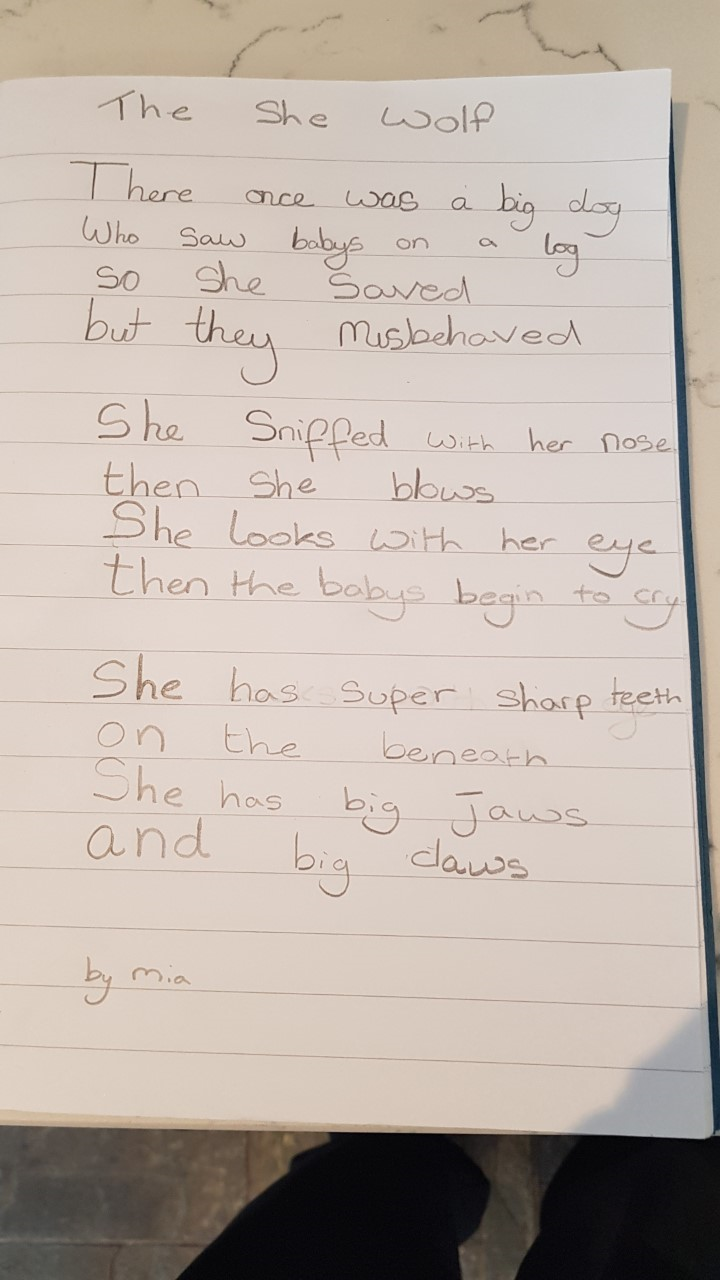 The She Wolf
There once was a big dog
Who saw babys on a log
so she saved
but they misbehaved
She Sniffed with her nose
then she blows
She looks with her eye
then the babys begin to cry
She has super sharp teeth
on the beneath
She has big Jaws
and big claws
by mia